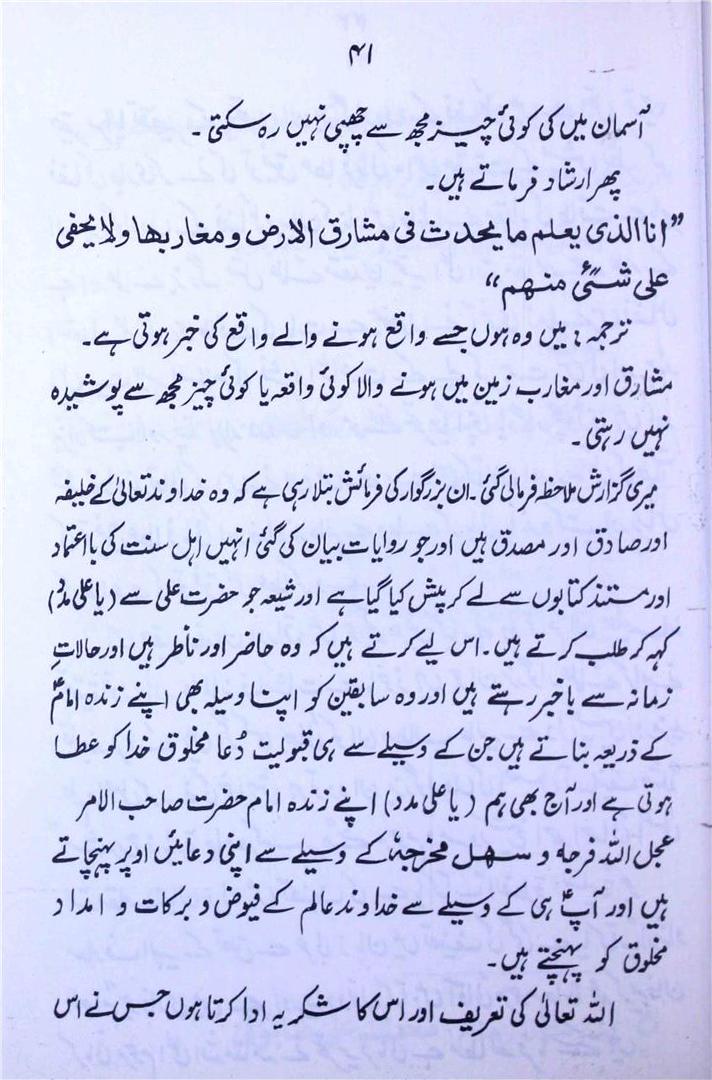 ۴۱
آسمان میں کی کوئی چیز مجھ سے چھپی نہیں رہ سکتی۔
پھر ارشاد فرماتے ہیں۔
”انا الذی یعلم ما یحدث فی مشارق الارض و مغاربھا ولا یخفی
علی شئی منھم“
ترجمہ: میں وہ ہوں جسے واقع ہونے والے واقع کی خبر ہوتی ہے۔
مشارق اور مغارب زمین میں ہونے والا کوئی واقعہ یا کوئی چیز مجھ سے پوشیدہ
نہیں رہتی۔
میری گزارش ملاحظہ فرمالی گئی۔ ان بزرگوار کی فرمائش بتلا رہی ہے کہ وہ خداوند تعالیٰ کے خلیفہ
اور صادق اور مصدق ہیں اور جو روایات بیان کی گئی انہیں اہل سنت کی بااعتماد
اور مستند کتابوں سے لے کر پیش کیا گیا ہے اور شیعہ جو حضرت علی سے (یا علی مدد)
کہہ کر طلب کرتے ہیں۔ اس لیے کرتے ہیں کہ وہ حاضر اور ناظر ہیں اور حالاتِ
زمانہ سے باخبر رہتے ہیں اور وہ سابقین کو اپنا وسیلہ بھی اپنے زندہ امامؑ
کے ذریعہ بناتے ہیں جن کے وسیلے سے ہی قبولیت دُعا مخلوق خدا کو عطا
ہوتی ہے اور آج بھی ہم (یا علی مدد) اپنے زندہ امام حضرت صاحب الامر
عجل اللہ فرجہ و سھل مخرجہٗ کے وسیلے سے اپنی دعائیں اوپر پہنچاتے
ہیں اور آپؑ ہی کے وسیلے سے خداوند عالم کے فیوض و برکات و امداد
مخلوق کو پہنچتے ہیں۔
اللہ تعالیٰ کی تعریف اور اس کا شکریہ ادا کرتا ہوں جس نے اس